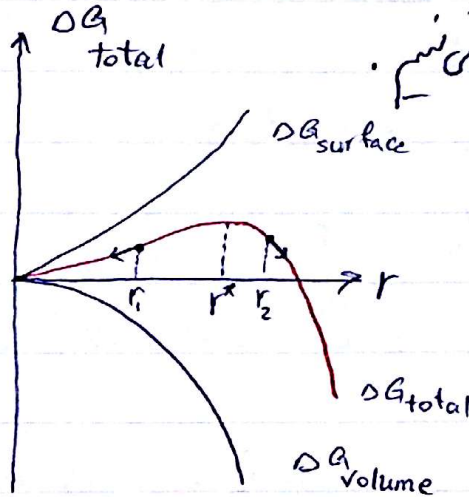 ΔG
total
ΔG surface
r₁ r* r₂ r
ΔG total
ΔG volume